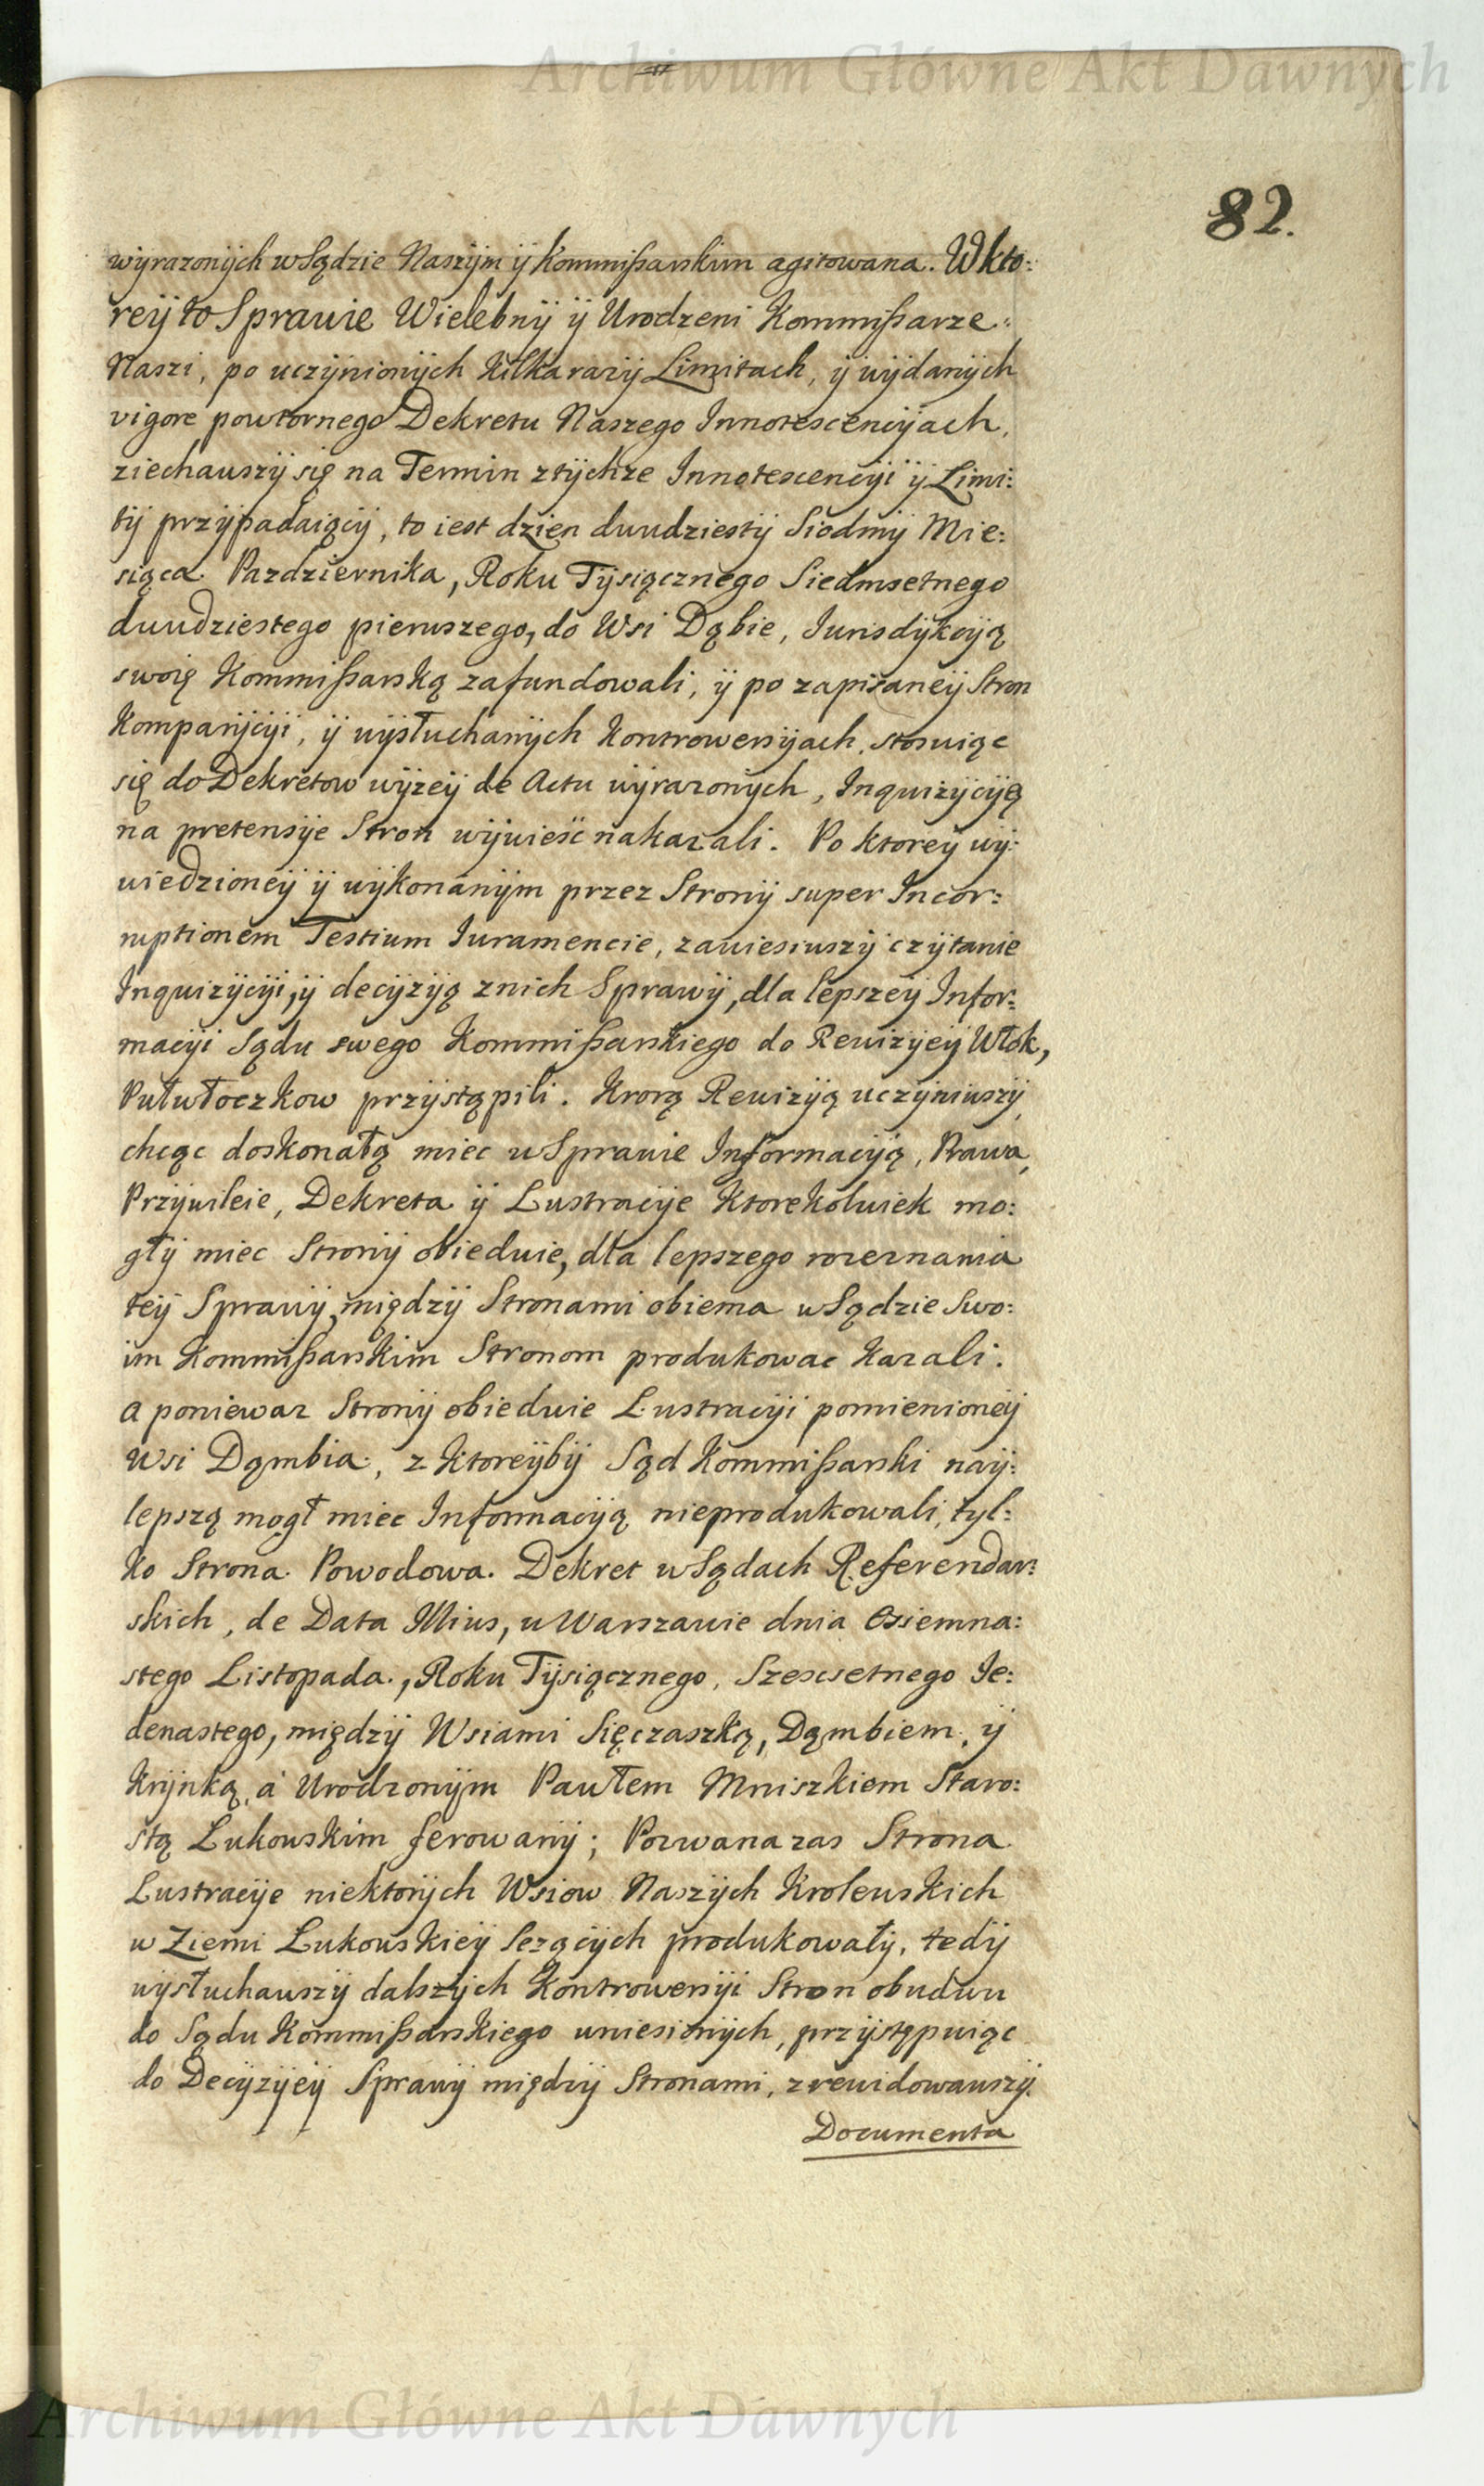 Archiwum Główne Akt Dawnych
82.
wyrazonych w Sądzie Naszym y Kommissarskim agitowana. W kto:
rey to Sprawie Wielebny y Urodzeni Kommissarze
Naszi, po uczynionych kilka razy Limitach, y wydanych
vigore powtornego Dekretu Naszego Innotescencyach,
ziechawszy się na Termin z tychze Innotescencyi y Limi:
ty przypadaiący, to iest dzien dwudziesty Siodmy Mie:
siąca Pazdziernika, Roku Tysiącznego Siedmsetnego
dwudziestego pierwszego, do Wsi Dąbie, Iurisdykcyą
swoię Kommissarską zafundowali, y po zapisaney Stron
Komparycyi, y wysłuchanych Kontrowersyach, stosuiąc
się do Dekretow wyzey de Actu wyrazonych, Inquizycyą
na pretensye Stron wywieść nakazali. Po ktorey wy:
wiedzioney y wykonanym przez Strony super Incor:
ruptionem Testium Iuramencie, zawiesiwszy czytanie
Inquizycyi, y decyzyą z nich Sprawy, dla lepszey Infor:
macyi Sądu swego Kommissarskiego do Rewizyey Włok,
Pułwłoczkow przystąpili. Ktorą Rewizyą uczyniwszy,
chcąc doskonałą miec w Sprawie Informacyą, Prawa,
Przywileie, Dekreta y Lustracye ktorekolwiek mo:
gły miec Strony obiedwie, dla lepszego rozeznania
tey Sprawy, między Stronami obiema w Sądzie Swo:
im Kommissarskim Stronom produkowac kazali.
A poniewaz Strony obiedwie Lustracyi pomienioney
Wsi Dąmbia, z ktoreyby Sąd Kommissarski nay:
lepszą mogł miec Informacyą nieprodukowali, tyl:
ko Strona Powodowa Dekret w Sądach Referendar:
skich, de Data Illius, w Warszawie dnia Osiemna:
stego Listopada, Roku Tysiącznego, Szescsetnego Ie:
denastego, między Wsiami Sięczaszką, Dąmbiem, y
Krynką, á Urodzonym Pawłem Mniszkiem Staro:
stą Lukowskim ferowany; Pozwana zas Strona
Lustracye niektorych Wsiow Naszych Krolewskich
w Ziemi Lukowskiey lezących produkowały, tedy
wysłuchawszy dalszych Kontrowersyi Stron obudwu
do Sądu Kommissarskiego wniesionych, przystępuiąc
do Decyzyey Sprawy między Stronami, zrewidowawszy
Documenta
Archiwum Główne Akt Dawnych